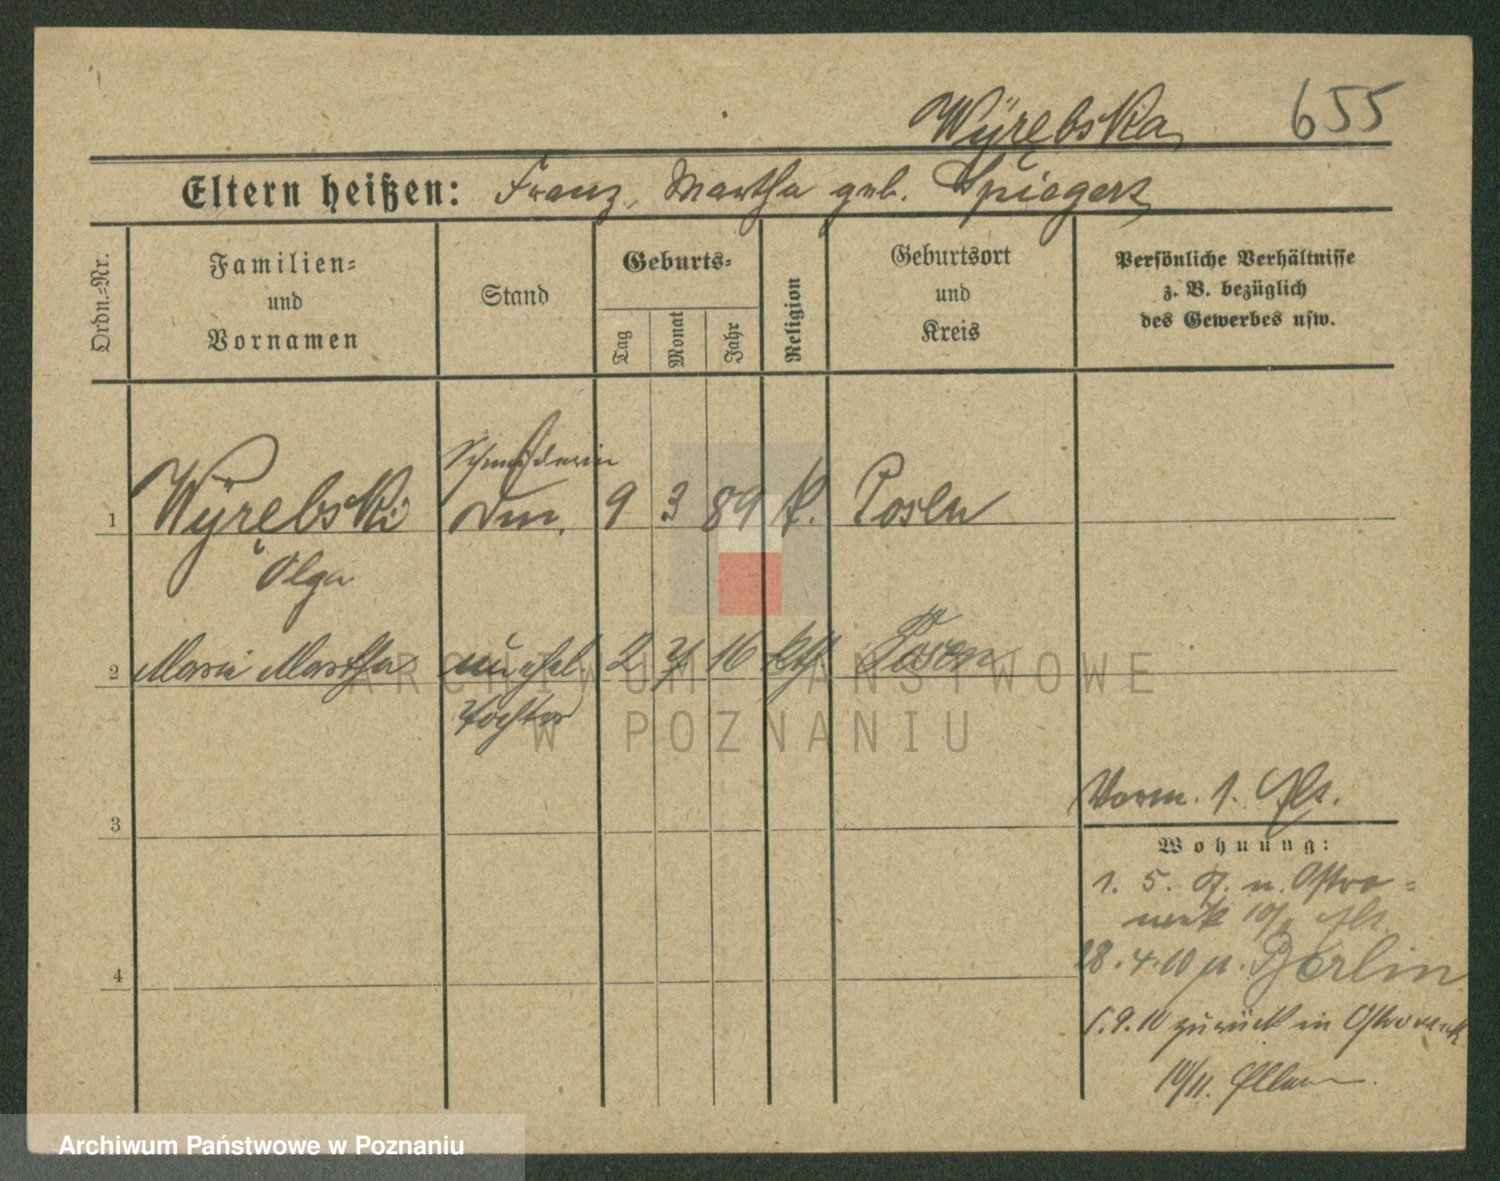 Wyrębska 655
Eltern heißen: Franz, Martha geb. Spiegert
Ordn.-Nr.
Familien-
und
Vornamen
Stand
Geburts-
Tag
Monat
Jahr
Religion
Geburtsort
und
Kreis
Persönliche Verhältnisse
z. B. bezüglich
des Gewerbes usw.
Schneiderin
1 Wyrębski 9 3 89 K. Posen
Olga
2 Maria Martha unehel. 2 7 16 kth Posen
Tochter
ARCHIWUM PAŃSTWOWE
W POZNANIU
3
Vorm. 1.
Wohnung:
1. 5. n. Ostro-
werk 10/
28.4.10 n. Berlin
1.9.10 zurück in Ostrowerk
10/11.
4
Archiwum Państwowe w Poznaniu